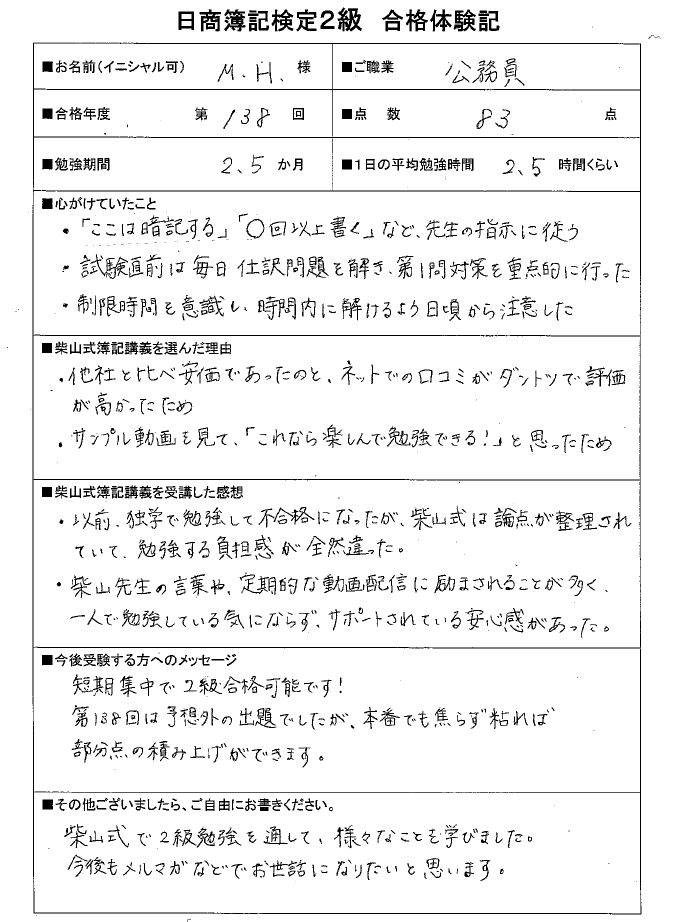 日商簿記検定2級 合格体験記
■お名前(イニシャル可) M.H. 様 ■ご職業 公務員
■合格年度 第 138 回 ■点 数 83 点
■勉強期間 2.5 か月 ■1日の平均勉強時間 2.5 時間くらい
■心がけていたこと
・「ここは暗記する」「〇回以上書く」など、先生の指示に従う
・試験直前は毎日仕訳問題を解き、第1問対策を重点的に行った
・制限時間を意識し、時間内に解けるよう日頃から注意した
■柴山式簿記講義を選んだ理由
・他社と比べ安価であったのと、ネットでの口コミがダントツで評価
が高かったため
・サンプル動画を見て、「これなら楽しんで勉強できる!」と思ったため
■柴山式簿記講義を受講した感想
・以前、独学で勉強して不合格になったが、柴山式は論点が整理され
ていて、勉強する負担感が全然違った。
・柴山先生の言葉や、定期的な動画配信に励まされることが多く、
一人で勉強している気にならず、サポートされている安心感があった。
■今後受験する方へのメッセージ
短期集中で2級合格可能です!
第138回は予想外の出題でしたが、本番でも焦らず粘れば
部分点の積み上げができます。
■その他ございましたら、ご自由にお書きください。
柴山式で2級勉強を通して、様々なことを学びました。
今後もメルマガなどでお世話になりたいと思います。